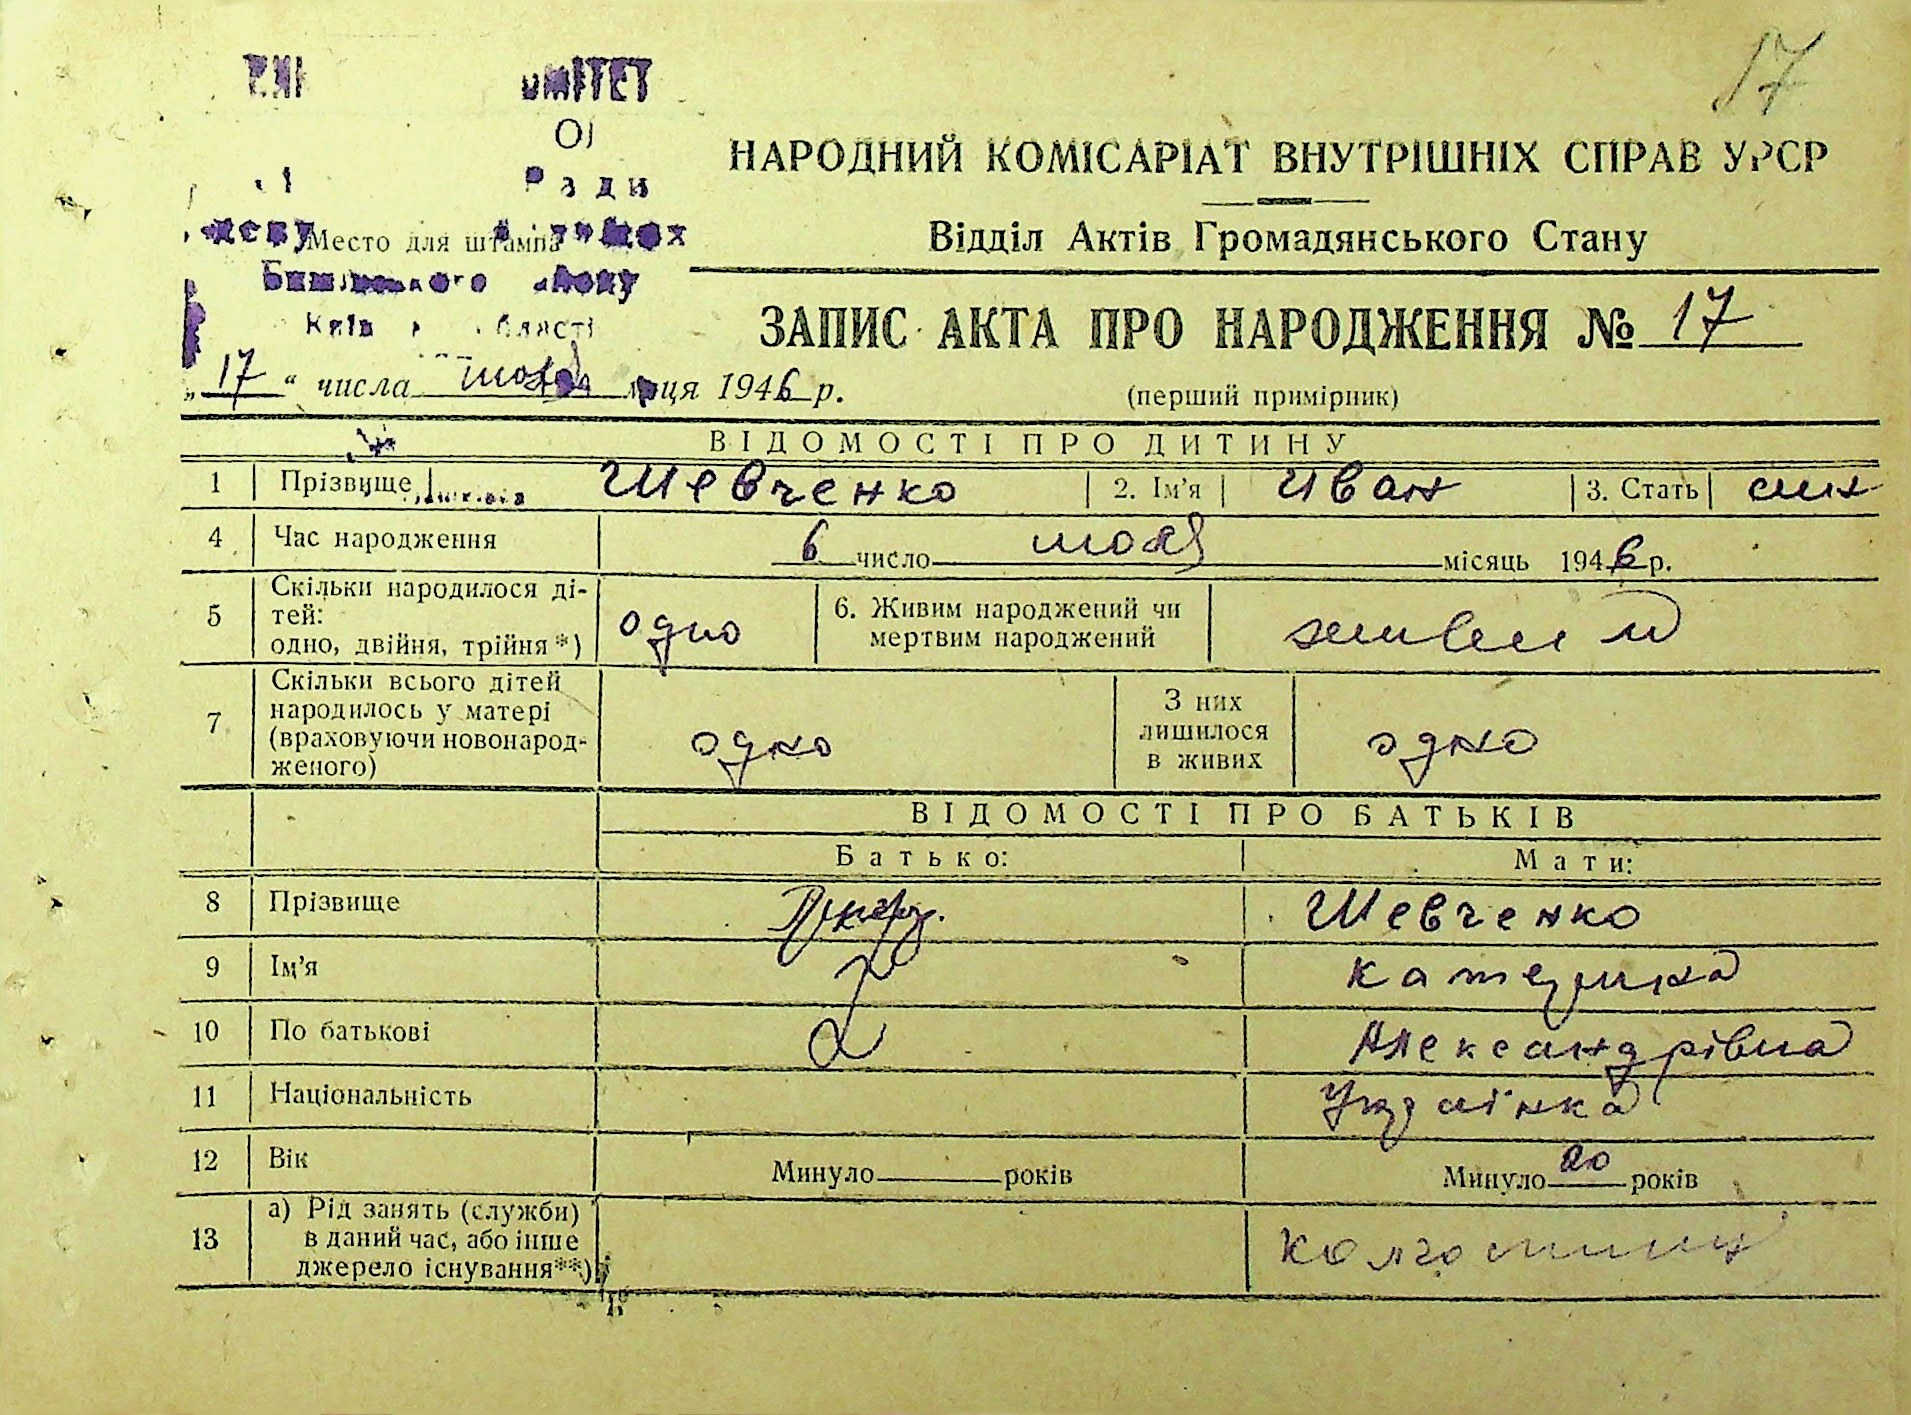 17
ОМІТЕТ
Ради
Место для штампа
району
Київ області
НАРОДНИЙ КОМІСАРІАТ ВНУТРІШНІХ СПРАВ УРСР
Відділ Актів Громадянського Стану
ЗАПИС АКТА ПРО НАРОДЖЕННЯ № 17
„17" числа м-ця 1946 р.
(перший примірник)
ВІДОМОСТІ ПРО ДИТИНУ
1 Прізвище Шевченко 2. Ім'я Иван 3. Стать
4 Час народження 6 число місяць 1946 р.
5 Скільки народилося ді-
тей:
одно, двійня, трійня *) одно 6. Живим народжений чи
мертвим народжений
7 Скільки всього дітей
народилось у матері
(враховуючи новонарод-
женого) одно З них
лишилося
в живих одно
ВІДОМОСТІ ПРО БАТЬКІВ
Батько: Мати:
8 Прізвище Шевченко
9 Ім'я Катерина
10 По батькові Александрівна
11 Національність Українка
12 Вік Минуло років Минуло 20 років
13 а) Рід занять (служби)
в даний час, або інше
джерело існування**)